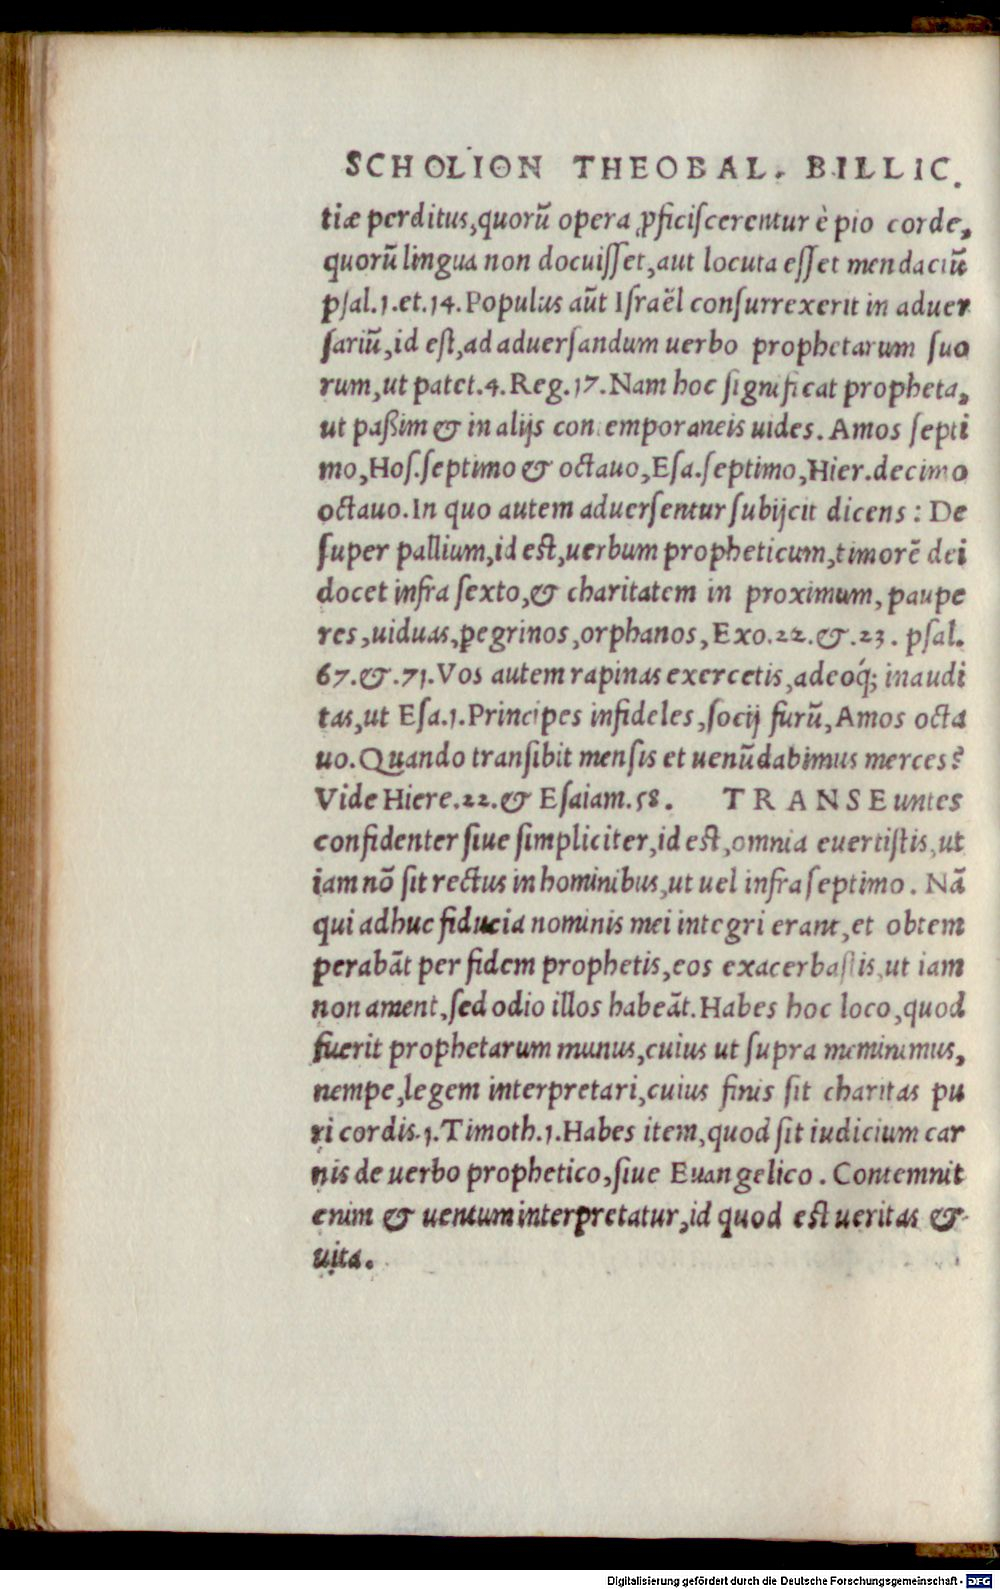 SCHOLION THEOBAL. BILLIC.
tiæ perditus,quorũ opera ꝓficiſcerentur è pio corde,
quorũ lingua non docuiſſet,aut locuta eſſet mendaciũ
pſal.1.et.14.Populus aũt Iſraël conſurrexerit in aduer
ſariũ,id eſt,ad aduerſandum uerbo prophetarum ſuo
rum,ut patet.4.Reg.17.Nam hoc ſignificat propheta,
ut paßim & in alijs contemporaneis uides.Amos ſepti
mo,Hoſ.ſeptimo & octauo,Eſa.ſeptimo,Hier.decimo
octauo.In quo autem aduerſentur ſubijcit dicens : De
ſuper pallium,id eſt,uerbum propheticum,timorẽ dei
docet infra ſexto,& charitatem in proximum,paupe
res,uiduas,ꝑegrinos,orphanos,Exo.22.&.23.pſal.
67.&.71.Vos autem rapinas exercetis,adeoq́; inaudi
tas,ut Eſa.1.Principes infideles,ſocij furũ,Amos octa
uo.Quando tranſibit menſis et uenũdabimus merces?
Vide Hiere.22.& Eſaiam.58. TRANSEuntes
confidenter ſiue ſimpliciter,id eſt,omnia euertiſtis,ut
iam nõ ſit rectus in hominibus,ut uel infra ſeptimo. Nã
qui adhuc fiducia nominis mei integri erant,et obtem
perabãt per fidem prophetis,eos exacerbaſtis,ut iam
non ament,ſed odio illos habeãt.Habes hoc loco,quod
fuerit prophetarum munus,cuius ut ſupra meminimus,
nempe,legem interpretari,cuius finis ſit charitas pu
ri cordis.1.Timoth.1.Habes item,quod ſit iudicium car
nis de uerbo prophetico,ſiue Euangelico. Contemnit
enim & uentum interpretatur,id quod eſt ueritas &
uita.
Digitalisierung gefördert durch die Deutsche Forschungsgemeinschaft - DFG